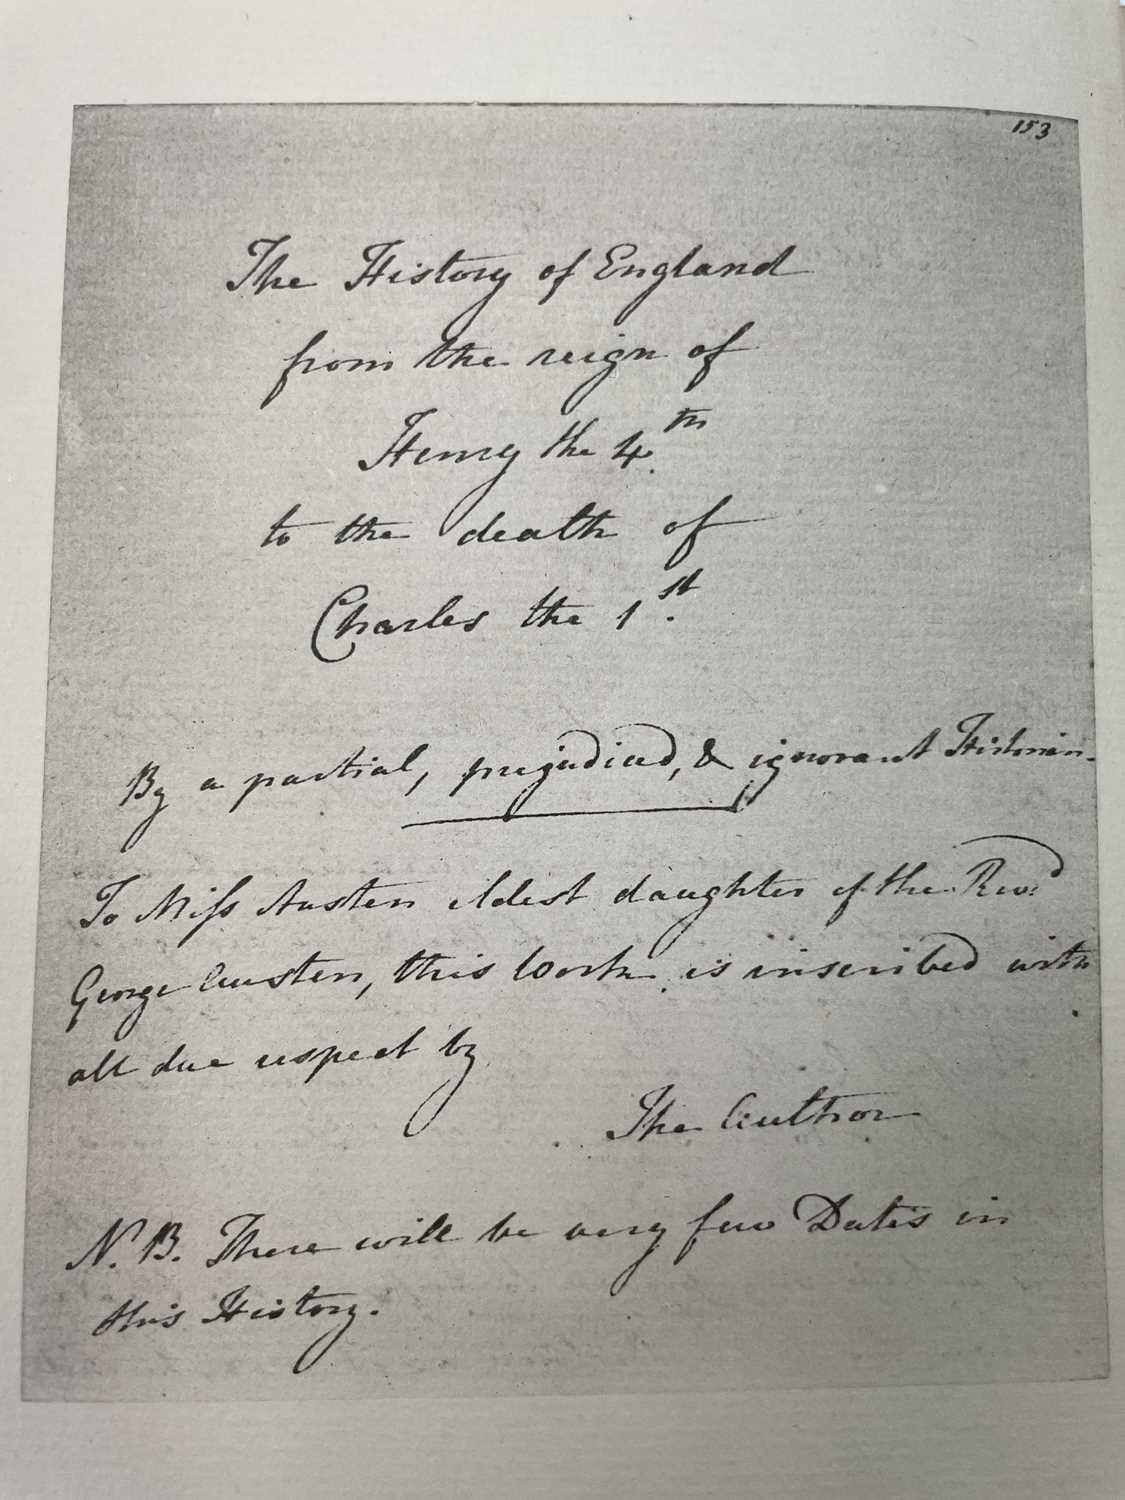 153
The History of England
from the reign of
Henry the 4th
to the death of
Charles the 1st.
By a partial, prejudiced, & ignorant Historian.
To Miss Austen eldest daughter of the Revd
George Austen, this Work is inscribed with
all due respect by
The Author
N.B. There will be very few Dates in
this History.